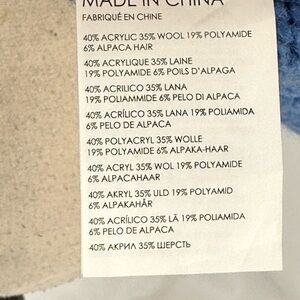 MADE IN CHINA
FABRIQUÉ EN CHINE
40% ACRYLIC 35% WOOL 19% POLYAMIDE
6% ALPACA HAIR
40% ACRYLIQUE 35% LAINE
19% POLYAMIDE 6% POILS D'ALPAGA
40% ACRILICO 35% LANA
19% POLIAMMIDE 6% PELO DI ALPACA
40% ACRÍLICO 35% LANA 19% POLIAMIDA
6% PELO DE ALPACA
40% POLYACRYL 35% WOLLE
19% POLYAMID 6% ALPAKA-HAAR
40% ACRYL 35% WOL 19% POLYAMIDE
6% ALPACAHAAR
40% AKRYL 35% ULD 19% POLYAMID
6% ALPAKAHÅR
40% ACRÍLICO 35% LÃ 19% POLIAMIDA
6% PELO DE ALPACA
40% АКРИЛ 35% ШЕРСТЬ